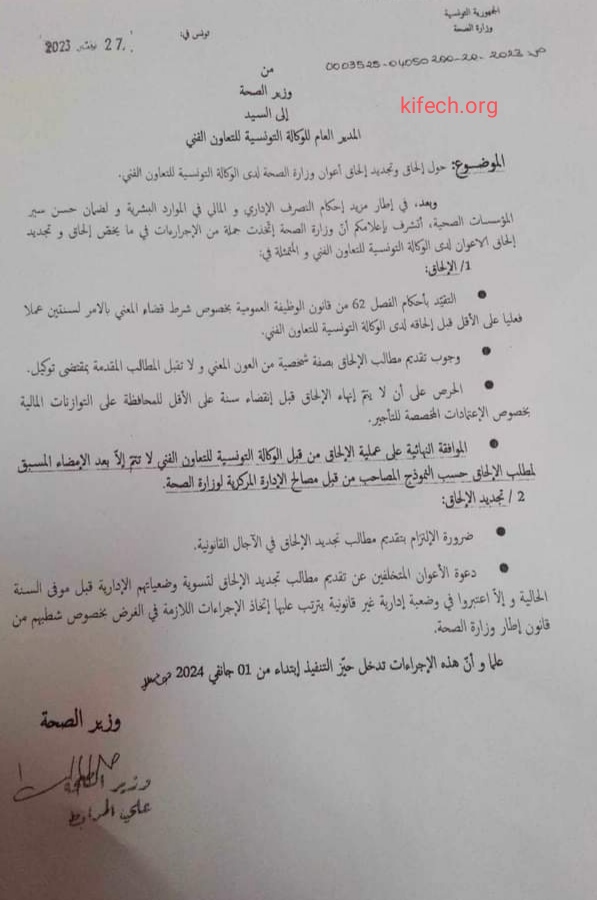 الجمهورية التونسية
وزارة الصحة
تونس في: 27 نوفمبر 2023
0003525-04050200-20-2023
من
وزير الصحة
إلى السيد
المدير العام للوكالة التونسية للتعاون الفني
kifech.org
الموضوع: حول إلحاق وتجديد إلحاق أعوان وزارة الصحة لدى الوكالة التونسية للتعاون الفني.
وبعد، في إطار مزيد إحكام التصرف الإداري و المالي في الموارد البشرية و لضمان حسن سير
المؤسسات الصحية، أتشرف بإعلامكم أنّ وزارة الصحة إتخذت جملة من الإجراءات في ما يخصّ إلحاق و تجديد
إلحاق الاعوان لدى الوكالة التونسية للتعاون الفني و المتمثلة في:
1/ الإلحاق:
● التقيّد بأحكام الفصل 62 من قانون الوظيفة العمومية بخصوص شرط قضاء المعني بالامر لسنتين عملا
فعليا على الأقل قبل إلحاقه لدى الوكالة التونسية للتعاون الفني.
● وجوب تقديم مطالب الإلحاق بصفة شخصية من العون المعني و لا تقبل المطالب المقدمة بمقتضى توكيل.
● الحرص على أن لا يتمّ إنهاء الإلحاق قبل إنقضاء سنة على الأقل للمحافظة على التوازنات المالية
بخصوص الإعتمادات المخصصة للتأجير.
● الموافقة النهائية على عملية الإلحاق من قبل الوكالة التونسية للتعاون الفني لا تتمّ إلاّ بعد الإمضاء المسبق
لمطلب الإلحاق حسب النموذج المصاحب من قبل مصالح الإدارة المركزية لوزارة الصحة.
2 / تجديد الإلحاق:
● ضرورة الإلتزام بتقديم مطالب تجديد الإلحاق في الآجال القانونية.
● دعوة الأعوان المتخلفين عن تقديم مطالب تجديد الإلحاق لتسوية وضعياتهم الإدارية قبل موفى السنة
الحالية و إلاّ اعتبروا في وضعية إدارية غير قانونية يترتب عليها إتخاذ الإجراءات اللازمة في الغرض بخصوص شطبهم من
قانون إطار وزارة الصحة.
علما و أنّ هذه الإجراءات تدخل حيّز التنفيذ إبتداء من 01 جانفي 2024
وزير الصحة
وزير الصحة
علي المرابط